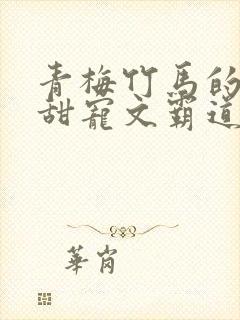 青梅竹馬的
甜寵文霸道
華崗